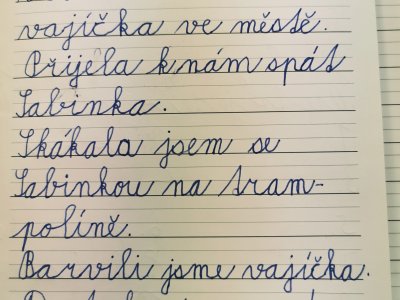 vajíčka ve městě.
Přijela k nám spát
Sabinka.
Skákala jsem se
Sabinkou na tram-
políně.
Barvili jsme vajíčka.